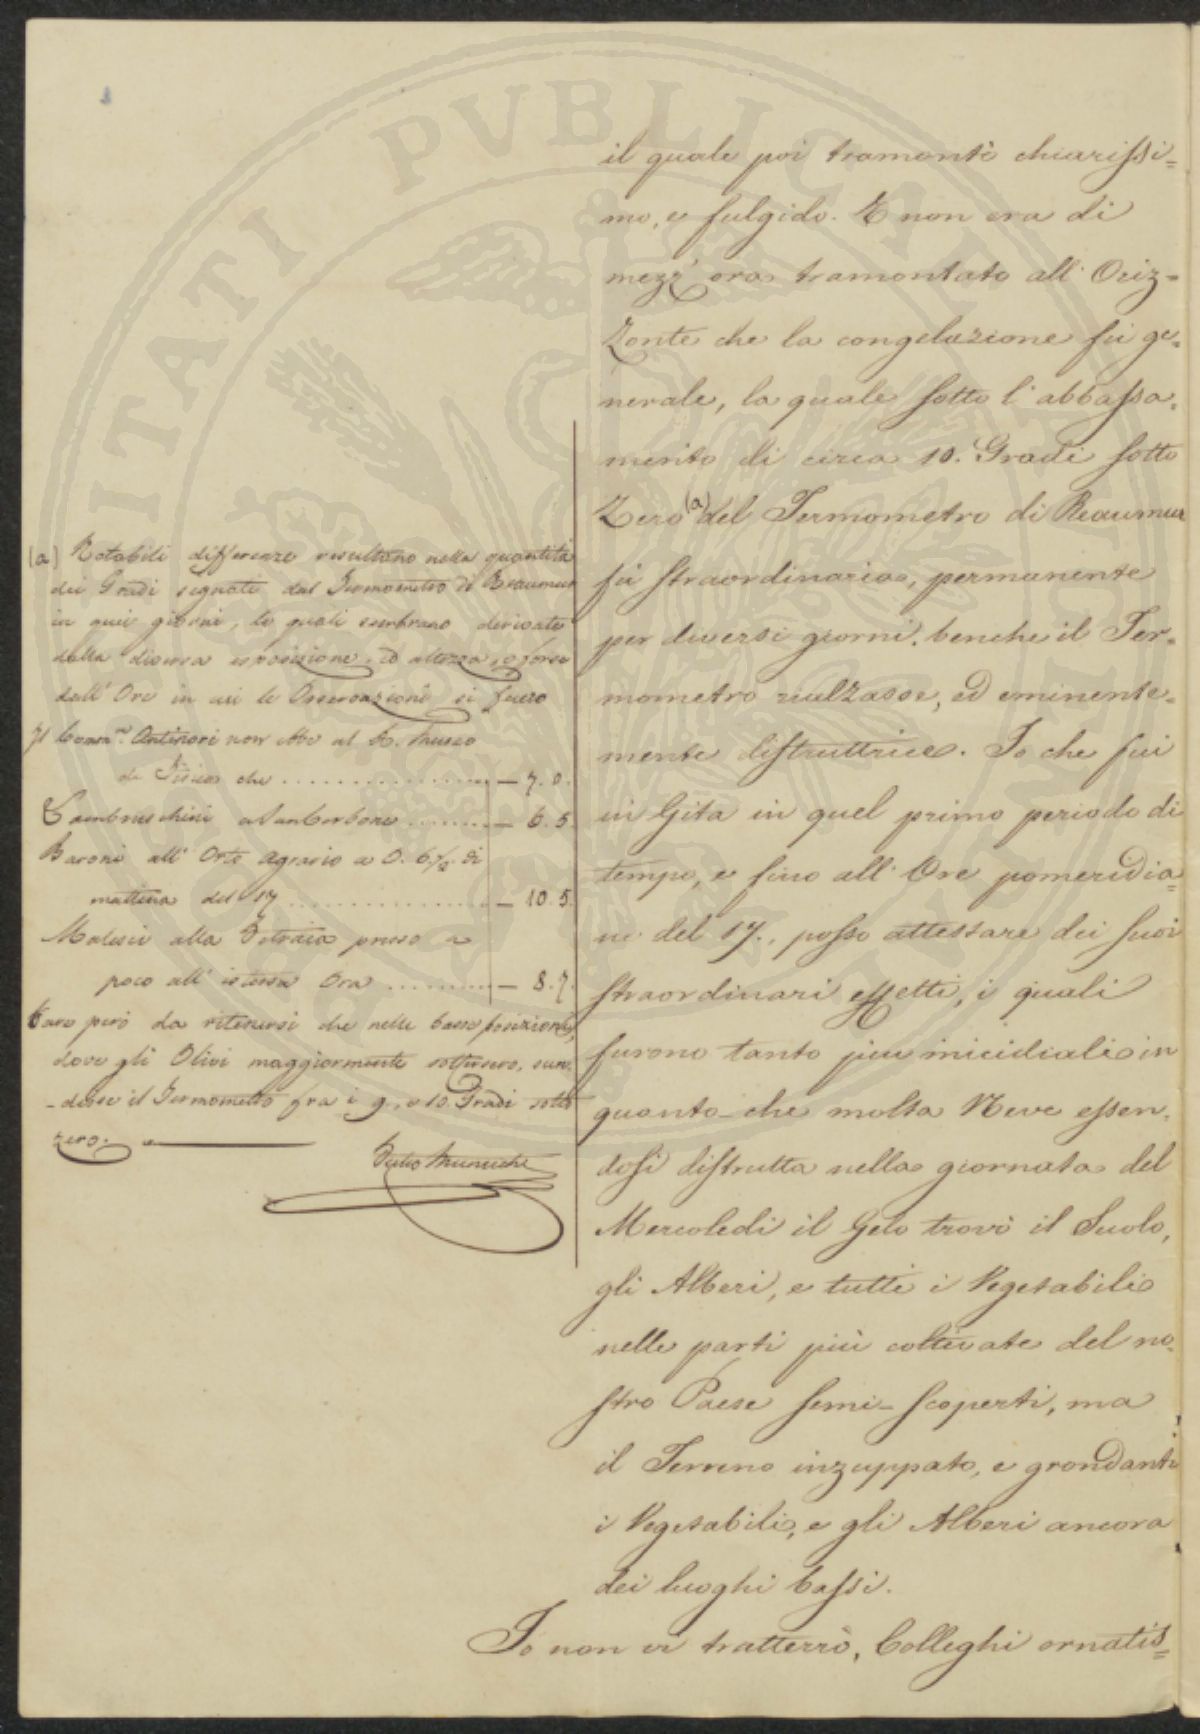 il quale poi tramontò chiarissi=
mo, e fulgido. E non era di
mezz'ora tramontato all'Oriz=
zonte che la congelazione fu ge=
nerale, la quale sotto l'abbassa=
mento di circa 10. Gradi sotto
Zero (a) del Termometro di Reaumur
fù straordinaria, permanente
per diversi giorni, benche il Ter=
mometro rialzasse, ed eminente=
mente distruttrice. Io che fui
in Gita in quel primo periodo di
tempo, e fino all'Ore pomeridia=
ne del 17., posso attestare dei suoi
straordinari effetti, i quali
furono tanto piu inicidiali in
quanto che molta Neve essen=
dosi distrutta nella giornata del
Mercoledi il Gelo trovò il Suolo,
gli Alberi, e tutti i Vegetabili
nelle parti più coltivate del no=
stro Paese semi-scoperti, ma
il Terreno inzuppato, e grondanti
i Vegetabili, e gli Alberi ancora
dei luoghi bassi.
Io non vi tratterrò, Colleghi ornatis=
(a) Notabili differenze resultano nella quantità
dei Gradi segnati dal Termometro di Reaumur
in quei giorni, le quali sembrano derivate
dalla diversa esposizione, ed altezza, o forse
dall'Ore in cui le Osservazioni si fecero
Il Comm.e Antinori non ebbe al R. Museo
di Fisica che .......... — 7. 0.
Lambruschini a San Cerbone .......... — 6. 5.
Baroni all'Orto Agrario a O. 6 1/2 di
mattina del 17 .......... — 10. 5.
Malesci alla Petraia presso a
poco all'istessa Ora .......... — 8. 7.
Pare però da ritenersi che nelle basse posizioni,
dove gli Olivi maggiormente soffersero, scen=
desse il Termometro fra i 9, e 10 Gradi sotto
zero.
PUBLICAE UTILITATI